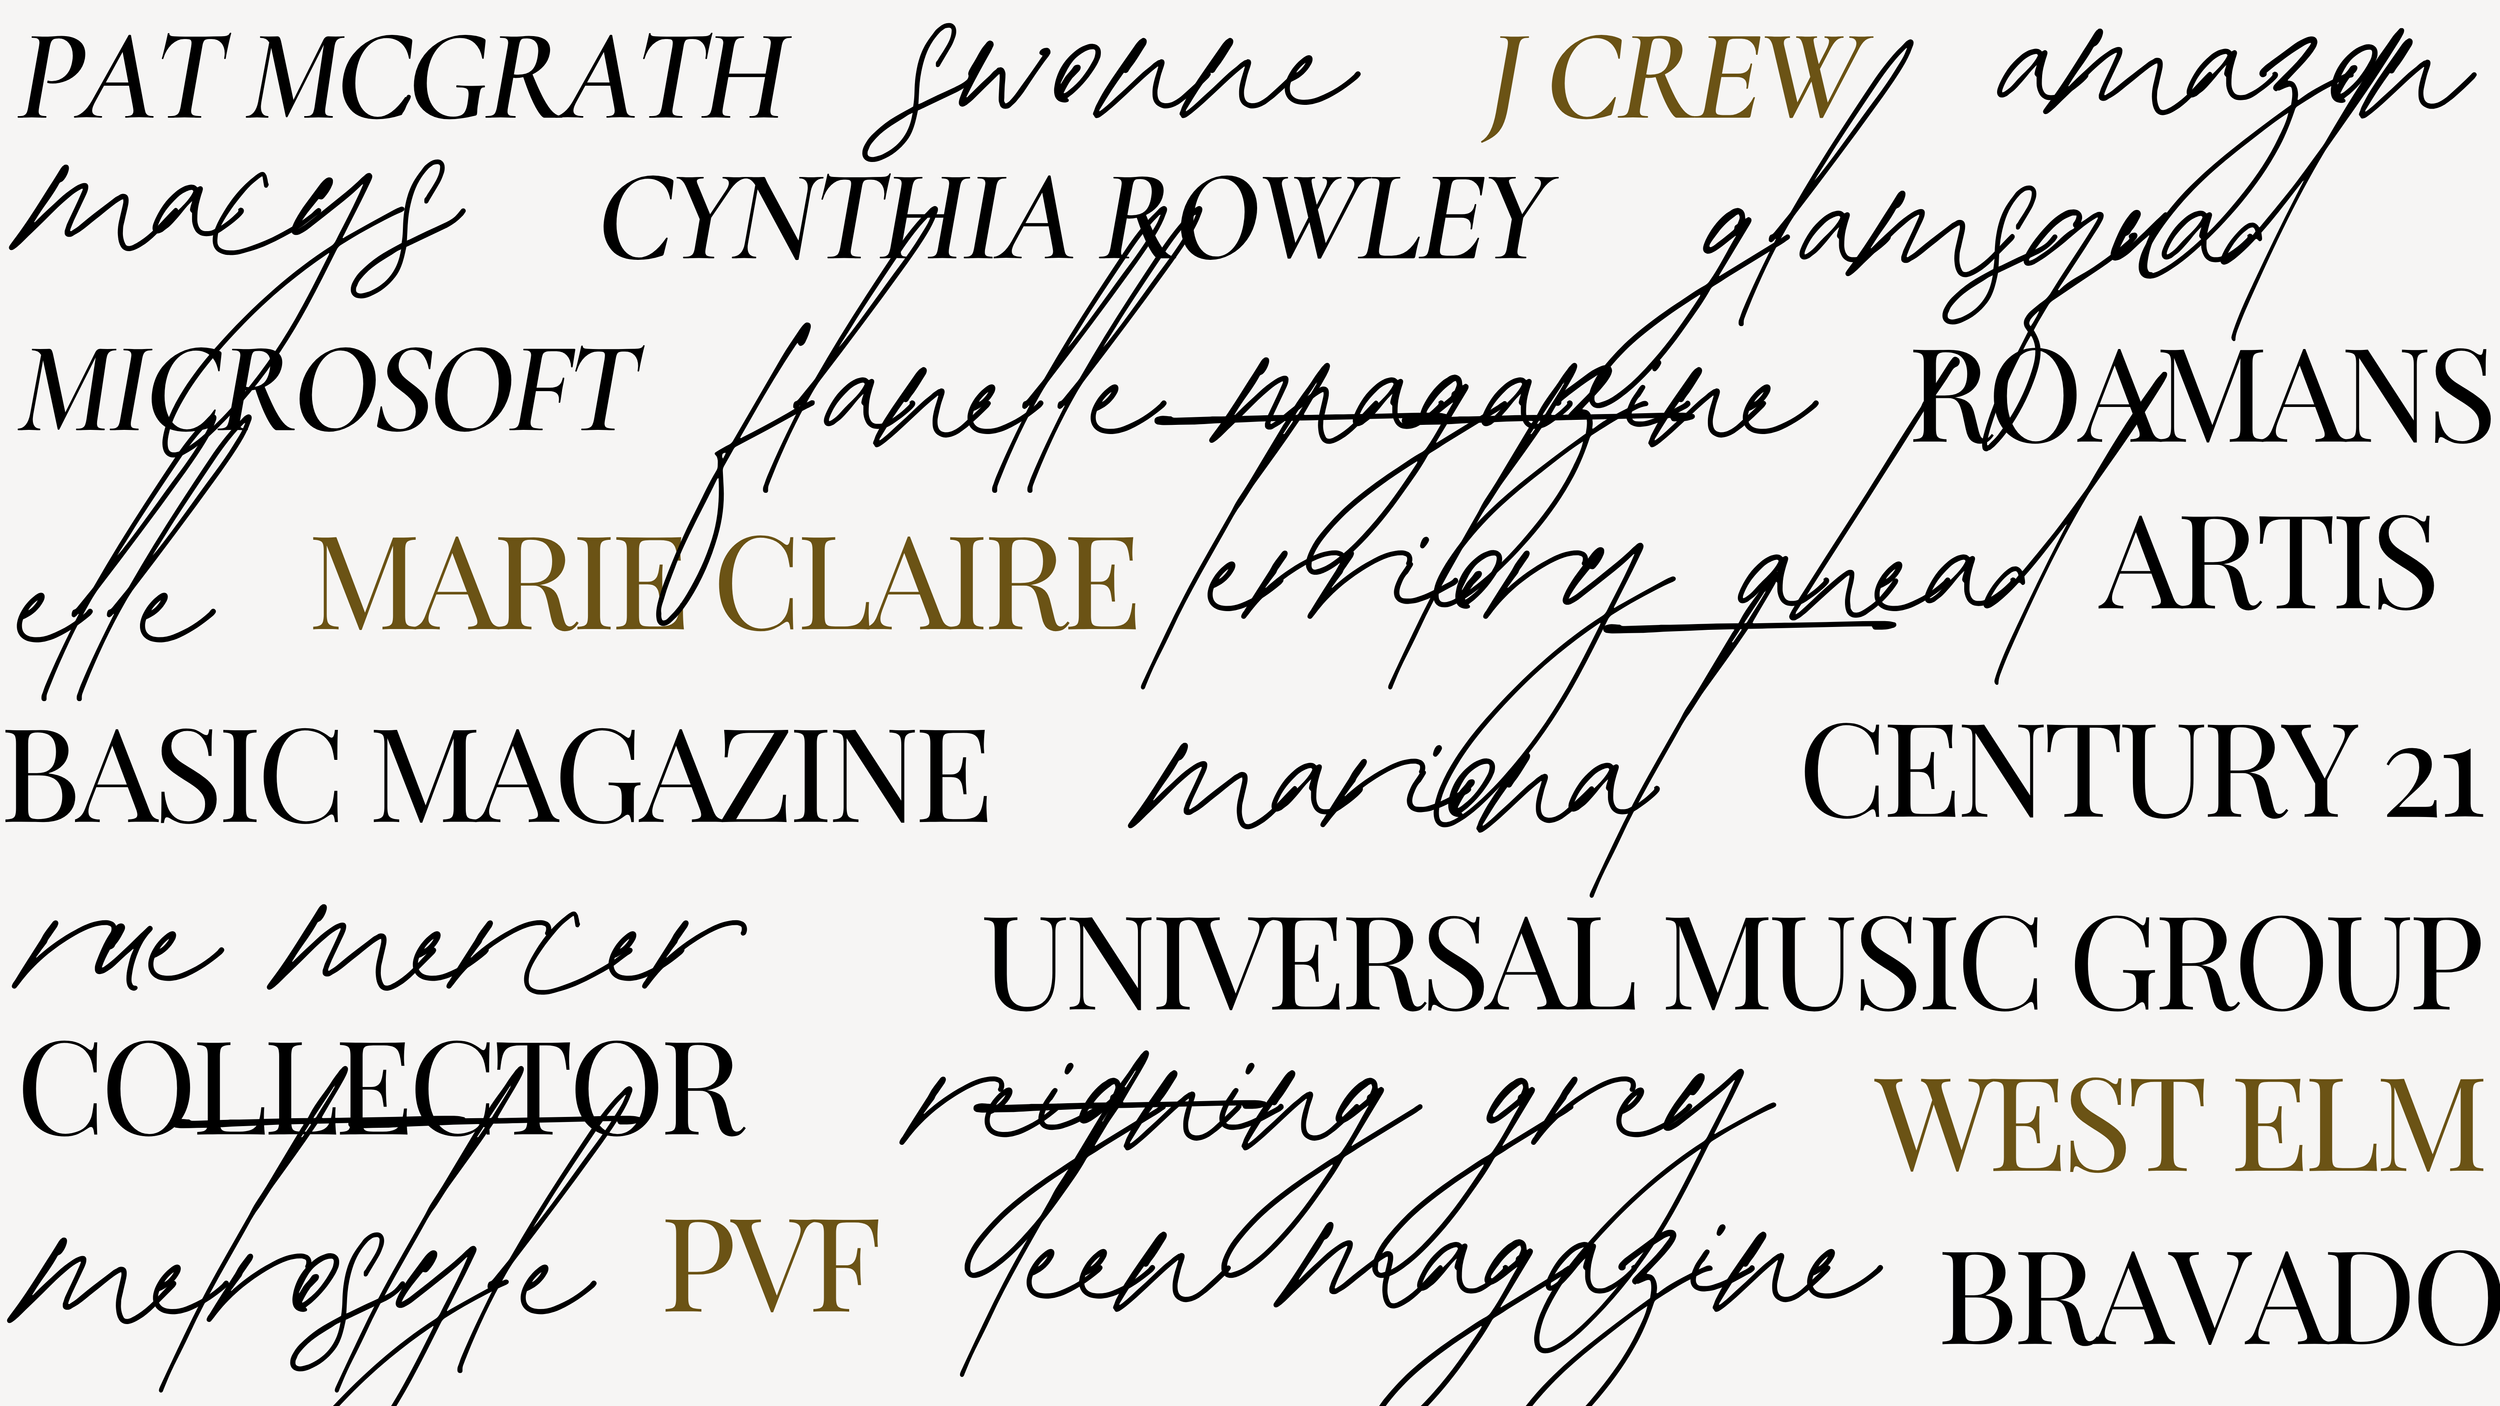 PAT MCGRATH J CREW amazon
macys CYNTHIA ROWLEY glamsquad
MICROSOFT flanelle magazine ROAMANS
elle MARIE CLAIRE ARTIS
BASIC MAGAZINE CENTURY 21
mercer UNIVERSAL MUSIC GROUP
COLLECTOR reigning grey WEST ELM
metrostyle PVF teen magazine BRAVADO